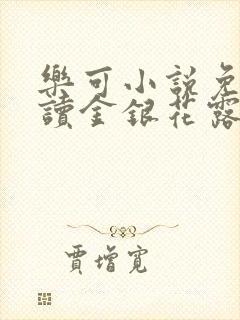 樂可小說免
讀金銀花露
賈增寬